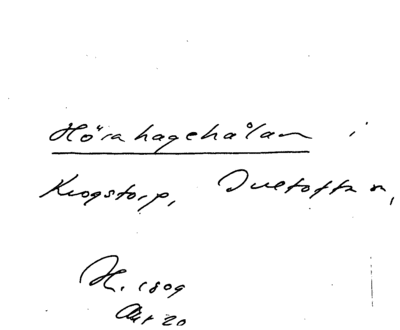 Hörahagehålan i
Krogstorp, Duetofta n,
H. 1809
Akt 20